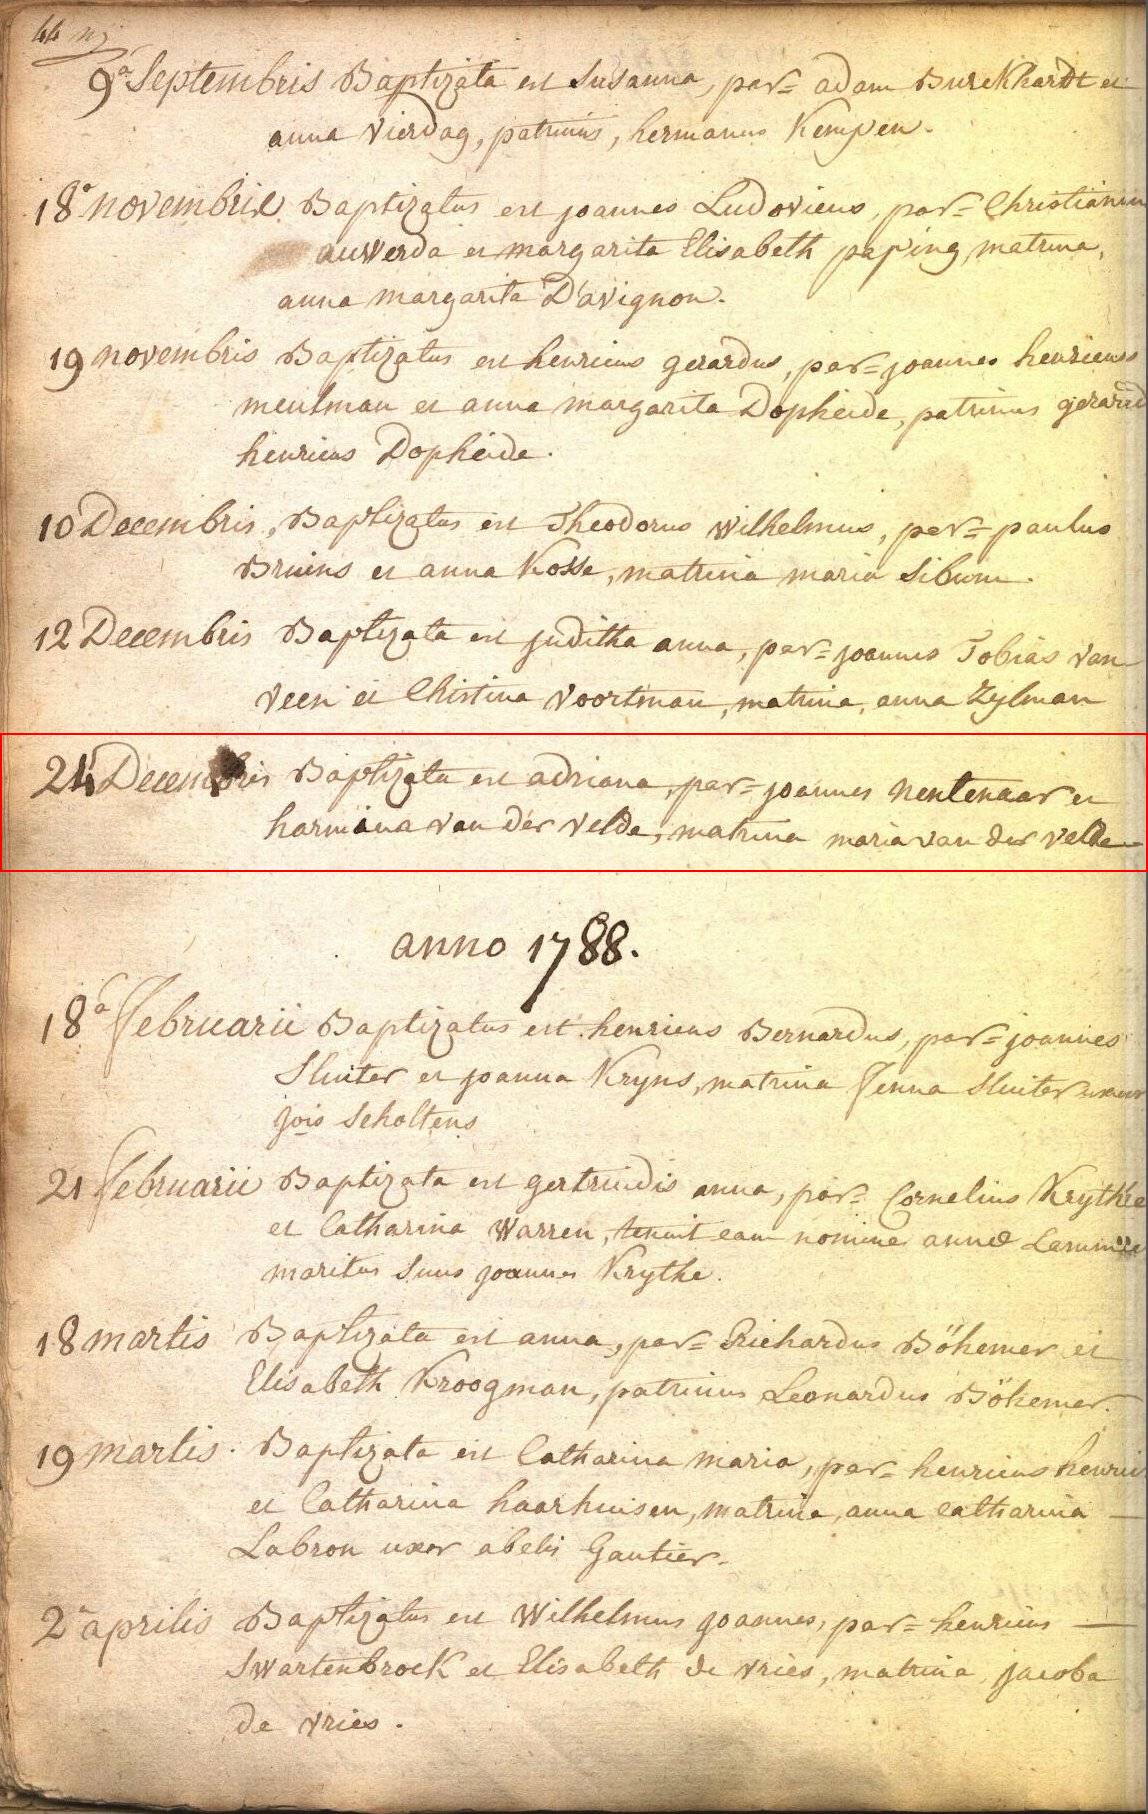 44
9ª Septembris Baptizata est Susanna, par= adam Burckhardt et
anna Vierdag, patrinus, hermanus Kempen.
18° novembris Baptizatus est joannes Ludovicus, par= Christianus
auwerda et margarita Elisabeth paping matrina,
anna margarita D'avignon.
19 novembris Baptizatus est henricus gerardus, par= joannes henricus
meulman et anna margarita Dopheide, patrinus gerard
henricus Dopheide.
10 Decembris, Baptizatus est Theodorus Wilhelmus, par= paulus
Bruins et anna Kosse, matrina maria Sibum.
12 Decembris Baptizata est juditha anna, par= joannes Tobias van
veen et Christina Voortman, matrina, anna Zylman
24 Decembris Baptizata est adriana, par= joannes nentenaar et
harmina van der velde, matrina maria van der velde
anno 1788.
18ª februarii Baptizatus est henricus Bernardus, par= joannes
Sluiter et joanna Kryns, matrina fenna Sluiter uxor
jois Scholtens
21 februarii Baptizata est gertrudis anna, par= Cornelius Krythe
et Catharina Warren, tenuit eam nomine annæ
maritus suus joannes Krythe.
18 martis Baptizata est anna, par= Richardus Böhemer et
Elisabeth Kroogman, patrinus Leonardus Böhemer.
19 martis. Baptizata est Catharina maria, par= henricus henrici
et Catharina haarhuisen, matrina, anna catharina
Labron uxor abelis Gautier.
2ª aprilis Baptizatus est Wilhelmus joannes, par= henricus
Swartenbroek et Elisabeth de vries, matrina, jacoba
de vries.